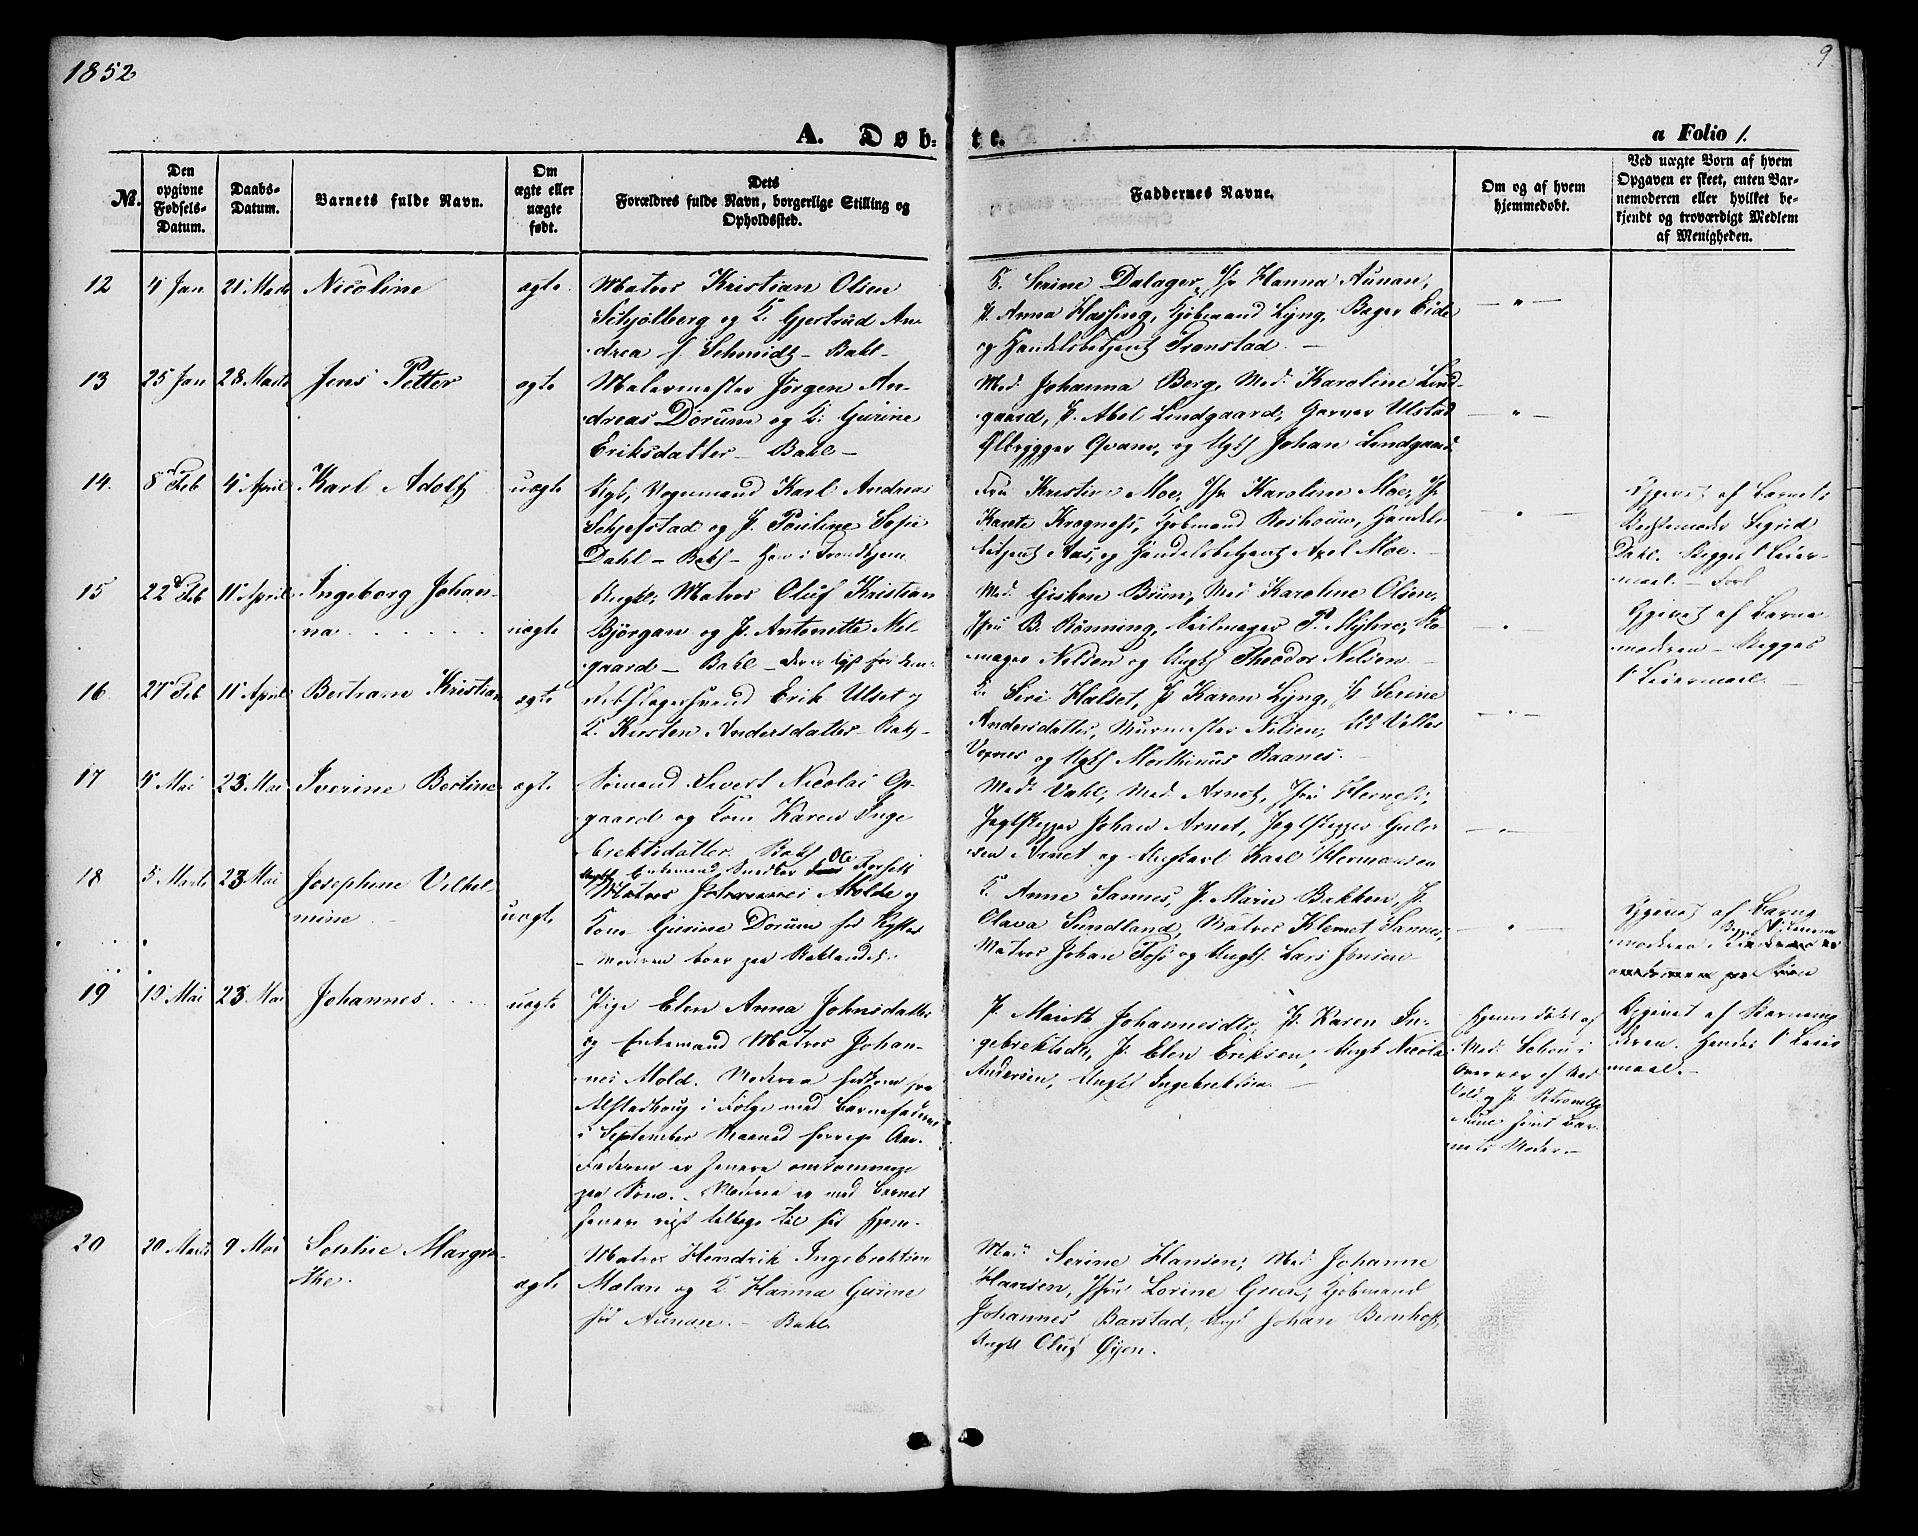 1852
9
A. Døb-
te.
a Folio 1.
№.
Den
opgivne
Fødsels-
Datum.
Daabs-
Datum.
Barnets fulde Navn.
Om
ægte eller
uægte
født.
Dets
Forældres fulde Navn, borgerlige Stilling og
Opholdssted.
Faddernes Navne.
Om og af hvem
hjemmedøbt.
Ved uægte Børn af hvem
Opgaven er skeet, enten Bar-
nemoderen eller hvilket be-
kjendt og troværdigt Medlem
af Menigheden.
12
4 Jan
21 Marts
Nicoline
ægte
Matros Kristian Olsen
Schjølberg og K. Gjertrud An-
drea f. Schmidt - Bakl -
K. Serine Dalager, Jfr Hanna Aunan,
P. Anna Hassing, Kjøbmand Lyng, Bager Eide
og Handelsbetjent Trønstad. -
13
25 Jan
28 Marts
Jens Petter
ægte
Malermester Jørgen An-
dreas Dorum og K. Gurine
Eriksdatter - Bakl -
Mad. Johanna Berg, Mad. Karoline Lind-
gaard, P. Abel Lindgaard, Garver Ulstad
Ølbrygger Qvam, og Ungk Johan Lindgaard
14.
8 Feb
4 April
Karl Adolf
uægte
Ungk, Vognmand Karl Andreas
Schjefstad og P. Pauline Sofie
Dahl - Bakl - Han i Trondhjem
Fru Kristine Moe, Jfr Karoline Moe, Jfr
Karete Kragness, Kjøbmand Roskouw, Handels-
betjent Aas, og Handelsbetjent Axel Moe. -
Opgivet af Barnets
Sigrid
Dahl. Begges 1 Leier-
maal. -
15
22 Feb
11 April
Ingeborg Johan-
na . . . . . .
uægte
Ungk, Matros Oluf Kristian
Bjørgan og P. Antonette Mel-
gaard - Bakl -
Mad. Gisken Bruun, Mad. Karoline Olsen,
Jfru B. Rønning, Seilmager P. Myhre, Sko-
mager Nilsen og Ungk Theodor Nilsen -
Opgivet af Barne-
moderen - Begges
1 Leiermaal. -
16
27 Feb
11 April
Bertram Kristian
ægte
Erik Ulset og
K. Kirsten Andersdatter - Bakl -
K. Siri Halset, P. Karen Lyng, P. Serine
Andersdatter, Murmester Nilsen,
og Ungk Morthinus Raanes. -
17
4 Mai
23 Mai
Iverine Bertine
ægte
Sømand Sivert Nicolai Op-
gaard og Kone Karen Inge-
brektsdatter. Bakl
Mad. Vahl, Mad. Arnet, Jfru Herness,
Jægtskipper Johan Arnet, Jægtskipper
Arnet og Ungkarl Karl Hermansen
18
5 Marts
23 Mai
Josephine Vilhel-
mine -
uægte
Enkemand Snedker Ole Forseth
Matros Johannes Molde og
Kone Gurine Dorum
- Moderen boer paa Baklandet.
K. Anne Sannes, P. Marie Bekken, P.
Olava Sundland, Matros Klemet Sannes,
Matros Johan Foss og Ungk. Lars Jensen -
Opgivet af Barne-
moderen
19
15 Mai
23 Mai
Johannes . . . .
uægte
Pige Elen Anna Johnsdatter
og Enkemand Matros Johan-
nes Mold. Moderen hidkom fra
Alstadhoug i Følge med Barnefaderen
i September Maaned forrige Aar.
Faderen er senere omkommen
paa Søen. - Moderen er med Barnet
senere reist tilbage til sit Hjem -
P. Marith Johannesdtr, P. Karen In-
gebrektsdtr, P. Elen Eriksen, Ungk Nicolai
Andersen, Ungk Ingebrektsen. -
Hjemmedøbt af
Mad. Sohn i
Overvær af Mad
Vold og P. Petronelle
Aune samt Bar-
nets Moder. -
Opgivet af Barnemo-
deren. Hendes 1 Leier-
maal. -
20
20 Marts
9 Mai
Sophie Margre-
the.
ægte
Matros Hendrik Ingebrektsen
Malan og K. Hanna Gurine
fød Aunan. - Bakl
Mad. Serine Hansen, Mad. Johanne
Hansen, Jfru Lorine Gram, Kjøbmand
Johannes Barstad, Ungk Johan Benhoft,
Ungk Oluf Øyen.